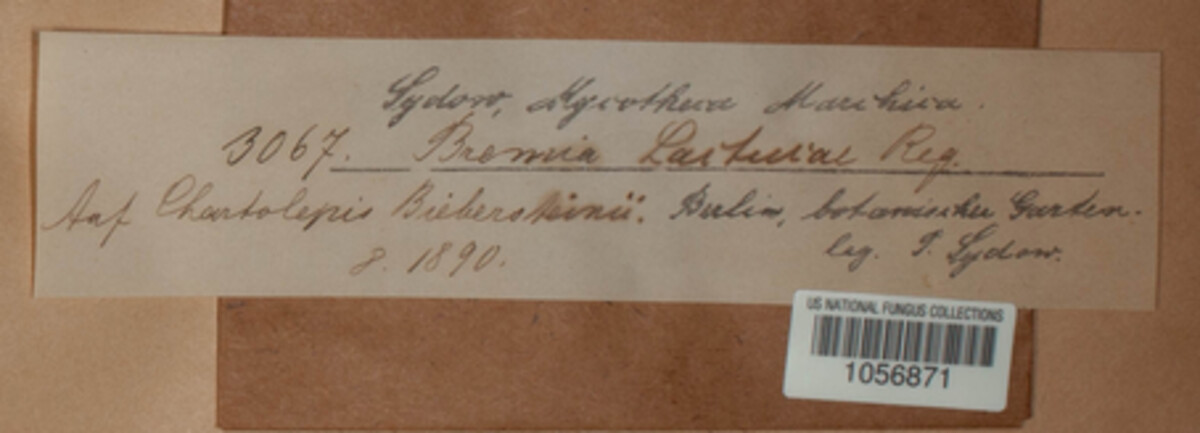 Sydow, Mycotheca Marchica.
3067. Bremia Lactucae Reg.
Auf Chartolepis Biebersteinii. Berlin, botanischer Garten.
8. 1890. leg. P. Sydow.
US NATIONAL FUNGUS COLLECTIONS
1056871